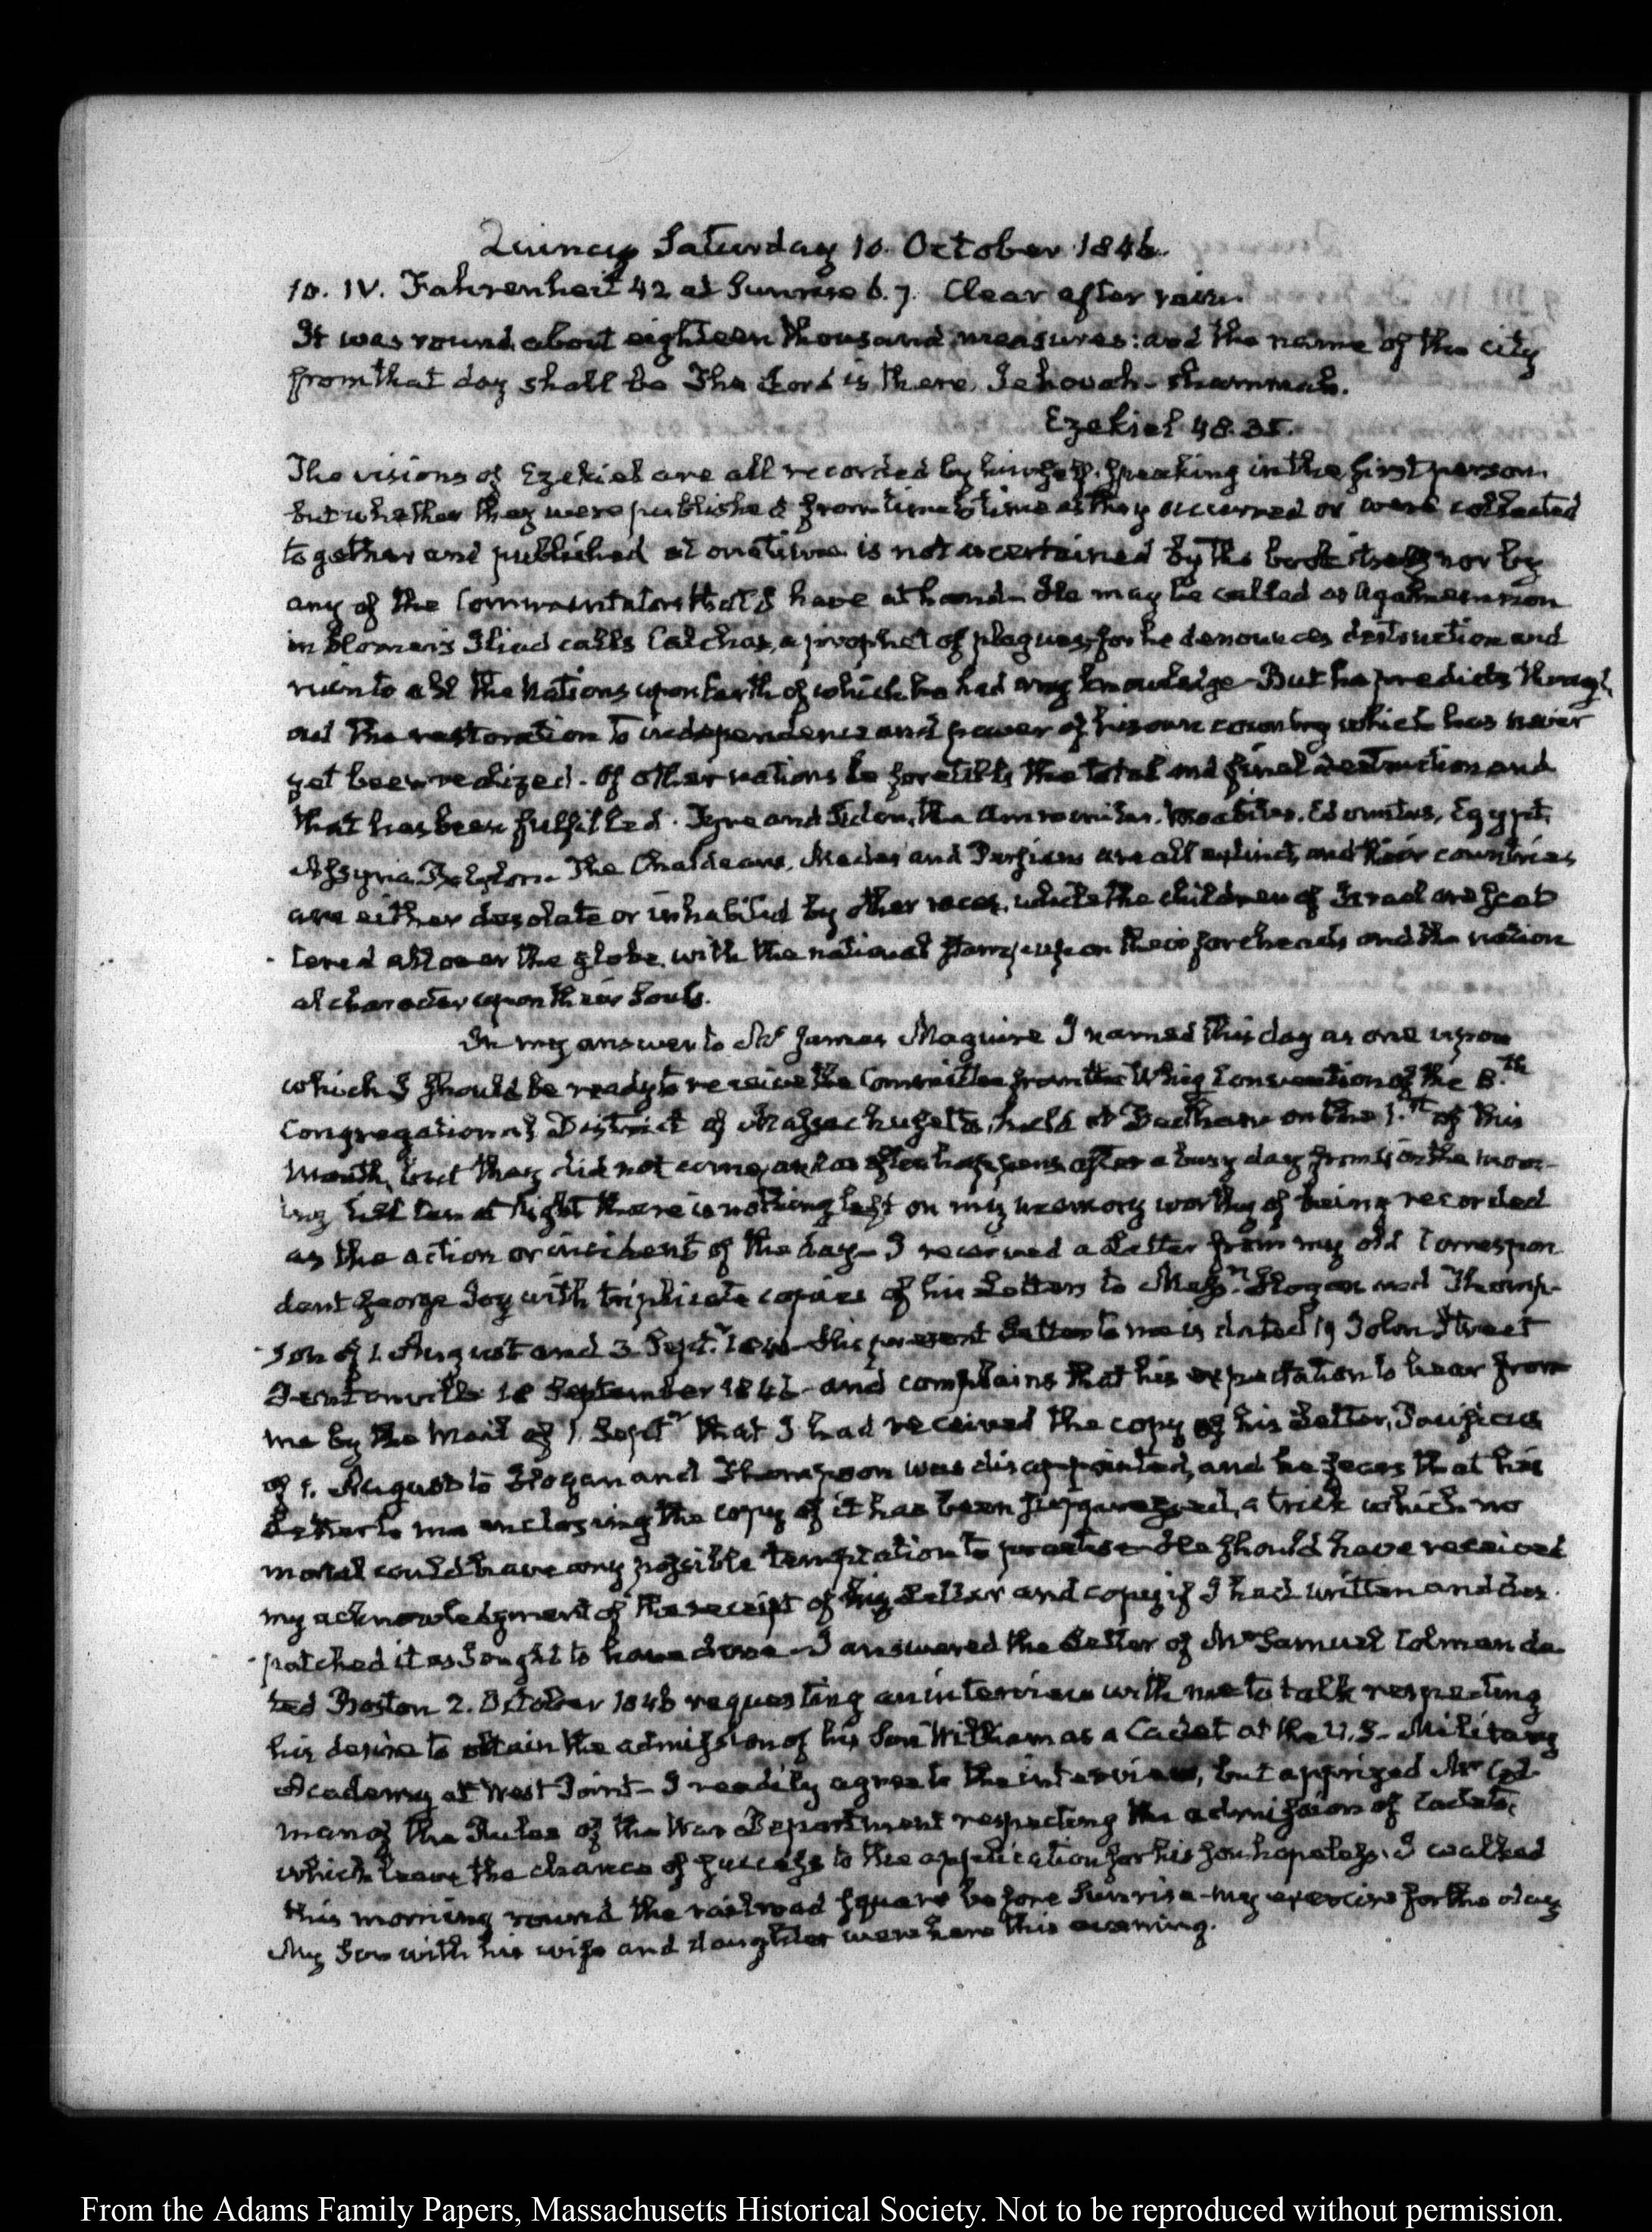 Quincy Saturday 10. October 1846.
10. IV. Fahrenheit 42 at Sunrise 6.7. Clear after rain.
It was round about eighteen thousand measures: and the name of the city
from that day shall be The Lord is there, Jehovah-shammah.
Ezekiel 48.35.
The visions of Ezekiel are all recorded by himself, speaking in the first person.
but whether they were published from time to time as they occurred or were collected
together and published at one time is not ascertained by the book itself nor by
any of the Commentators that I have at hand- He may be called as Agamemnon
in Homer's Iliad calls Calchas, a prophet of plagues, for he denounces destruction and
ruin to all the Nations upon Earth of which he had any knowledge- But he predicts through
out the restoration to independence and power of his own country which has never
yet been realized. Of other nations he foretells the total and final destruction and
that has been fulfilled. Tyre and Sidon, the Ammonites, Moabites, Edomites, Egypt,
Assyria, Babylon- The Chaldeans, Medes and Persians are all extinct, and their countries
are either desolate or inhabited by other races, while the children of Israel are scat
tered all over the globe, with the national stamp upon their foreheads and the nation
al character upon their Souls.
In my answer to Mr James Maguire I named this day as one upon
which I should be ready to receive the Committee from the Whig Convention of the 8.th
Congregational District of Massachusetts, held at Dedham on the 1.st of this
Month, but they did not come, and as often happens after a busy day from 4 in the morn-
ing till ten at Night there is nothing left on my memory worthy of being recorded
as the action or incident of the day- I received a Letter from my old Correspon
dent George Joy with triplicate copies of his Letters to Messrs. Hogan and Thomp-
son of 1. August and 3 Septr. 1846- His present Letter to me is dated 19 Solon Street
18 September 1846- and complains that his expectation to hear from
me by the Mail of 1. Septr that I had received the copy of his Letter, Pacificus
of 1. August to Hogan and Thompson was disappointed, and he fears that his
Letter to me enclosing the copy of it has been suppressed, a trick which no
mortal could have any possible temptation to practise- He should have received
my acknowledgment of the receipt of his Letter and copy if I had written and des-
patched it as I ought to have done- I answered the Letter of Mr Samuel Colman da
ted Boston 2. October 1846 requesting an interview with me to talk respecting
his desire to obtain the admission of his Son William as a Cadet at the U.S. Military
Academy at West Point- I readily agree to the interview, but apprized Mr Col-
man of the Rules of the War Department respecting the admission of Cadets,
which leave the chance of success to the application for his son hopeless. I walked
this morning round the railroad square before Sunrise- my exercise for the day
My Son with his wife and daughter were here this evening.
From the Adams Family Papers, Massachusetts Historical Society. Not to be reproduced without permission.